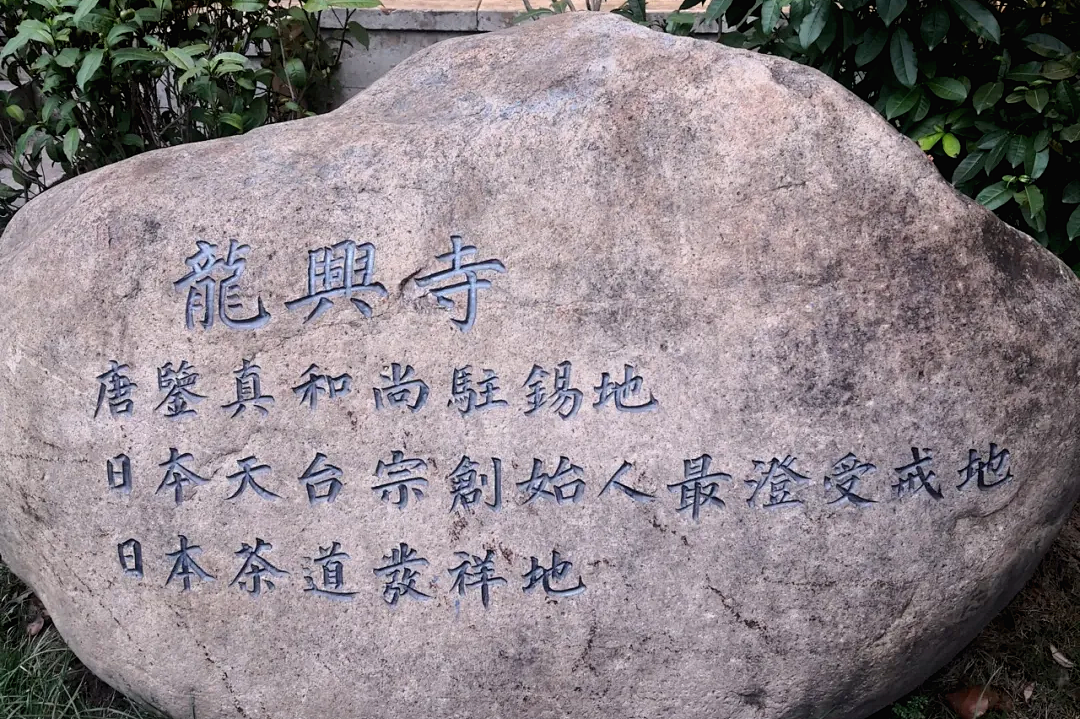 龍興寺
唐鑒真和尚駐錫地
日本天台宗創始人最澄受戒地
日本茶道發祥地